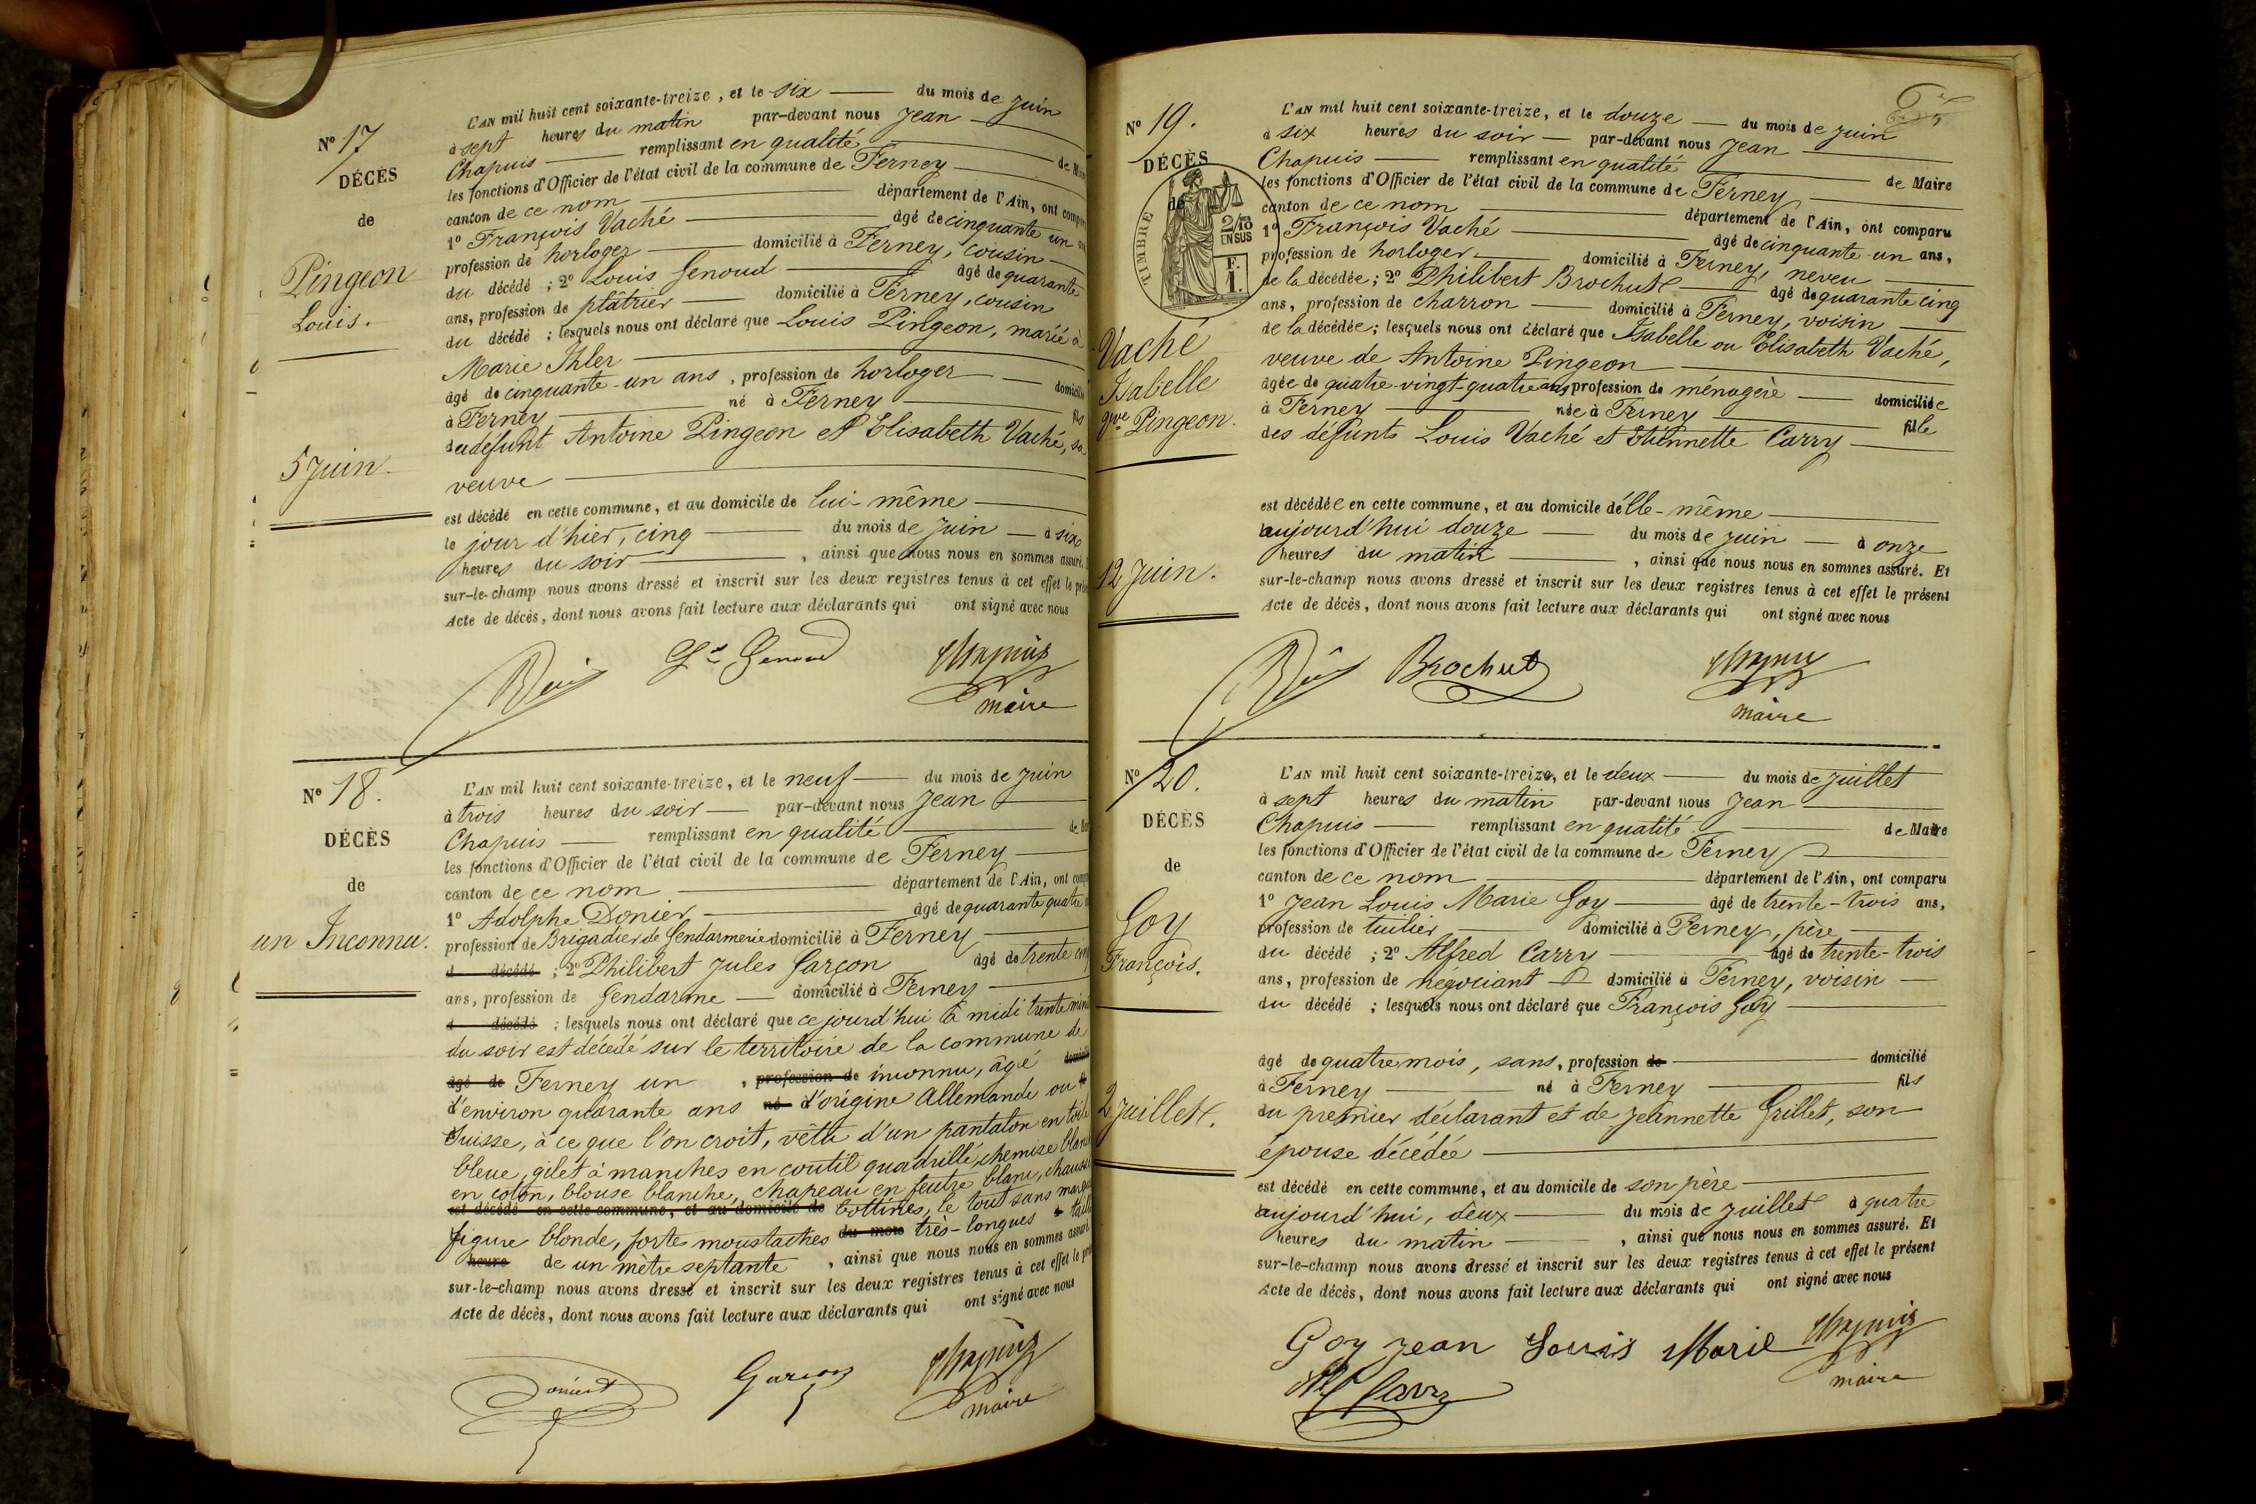 N° 17
DÉCÈS
de
Pingeon
Louis.
5 Juin.
L'AN mil huit cent soixante-treize, et le six du mois de Juin
à sept heures du matin par-devant nous Jean
Chapuis remplissant en qualité de
les fonctions d'Officier de l'état civil de la commune de Ferney
canton de ce nom département de l'Ain, ont
1° François Vaché âgé de cinquante un
profession de horloger domicilié à Ferney, cousin
du décédé ; 2° Louis Genoud âgé de quarante
ans, profession de plâtrier domicilié à Ferney, cousin
du décédé ; lesquels nous ont déclaré que Louis Pingeon, marié à
Marie Ihler
âgé de cinquante-un ans, profession de horloger
à Ferney né à Ferney fils
de défunt Antoine Pingeon et Elisabeth Vaché, sa
veuve
est décédé en cette commune, et au domicile de lui-même
le jour d'hier, cinq du mois de Juin à six
heures du soir, ainsi que nous nous en sommes assuré.
sur-le-champ nous avons dressé et inscrit sur les deux registres tenus à cet effet le
Acte de décès, dont nous avons fait lecture aux déclarants qui ont signé avec nous
Genoud Chapuis
maire
N° 18.
DÉCÈS
de
un Inconnu.
L'AN mil huit cent soixante-treize, et le neuf du mois de Juin
à trois heures du soir par-devant nous Jean
Chapuis remplissant en qualité
les fonctions d'Officier de l'état civil de la commune de Ferney
canton de ce nom département de l'Ain, ont
1° Adolphe Donier âgé de quarante quatre
profession de Brigadier de Gendarmerie domicilié à Ferney
d décédé ; 2° Philibert Jules Garçon âgé de trente
ans, profession de Gendarme domicilié à Ferney
d décédé ; lesquels nous ont déclaré que ce jourd'hui à midi trente
du soir est décédé sur le territoire de la commune de
âgé de Ferney un, profession de inconnu, âgé
d'environ quarante ans né d'origine Allemande ou
Suisse, à ce que l'on croit, vêtu d'un pantalon en toile
bleue, gilet à manches en coutil quadrillé, chemise
en coton, blouse blanche, chapeau en feutre blanc,
est décédé en cette commune, et au domicile de bottines, le tout sans
figure blonde, forte moustaches du mois très-longues à
heure de un mètre septante, ainsi que nous nous en sommes
sur-le-champ nous avons dressé et inscrit sur les deux registres tenus à cet effet le
Acte de décès, dont nous avons fait lecture aux déclarants qui ont signé avec nous
Garçon Chapuis
maire
N° 19.
DÉCÈS
de
TIMBRE
2/10
EN SUS
F.
1.
Vaché
Isabelle
Vve Pingeon.
12 Juin.
L'AN mil huit cent soixante-treize, et le douze du mois de Juin
à six heures du soir par-devant nous Jean
Chapuis remplissant en qualité de Maire
les fonctions d'Officier de l'état civil de la commune de Ferney
canton de ce nom département de l'Ain, ont comparu
1° François Vaché âgé de cinquante-un ans,
profession de horloger domicilié à Ferney, neveu
de la décédée ; 2° Philibert Brochut âgé de quarante cinq
ans, profession de charron domicilié à Ferney, voisin
de la décédée ; lesquels nous ont déclaré que Isabelle ou Elisabeth Vaché,
veuve de Antoine Pingeon
âgée de quatre-vingt-quatre ans, profession de ménagère domiciliée
à Ferney née à Ferney fille
des défunts Louis Vaché et Etiennette Carry
est décédée en cette commune, et au domicile d'elle-même
aujourd'hui douze du mois de Juin à onze
heures du matin, ainsi que nous nous en sommes assuré. Et
sur-le-champ nous avons dressé et inscrit sur les deux registres tenus à cet effet le présent
Acte de décès, dont nous avons fait lecture aux déclarants qui ont signé avec nous
Brochut Chapuis
maire
N° 20.
DÉCÈS
de
Goy
François.
2 Juillet.
L'AN mil huit cent soixante-treize, et le deux du mois de Juillet
à sept heures du matin par-devant nous Jean
Chapuis remplissant en qualité de Maire
les fonctions d'Officier de l'état civil de la commune de Ferney
canton de ce nom département de l'Ain, ont comparu
1° Jean Louis Marie Goy âgé de trente-trois ans,
profession de tuilier domicilié à Ferney, père
du décédé ; 2° Alfred Carry âgé de trente-trois
ans, profession de négociant domicilié à Ferney, voisin
du décédé ; lesquels nous ont déclaré que François Goy
âgé de quatre mois, sans, profession de domicilié
à Ferney né à Ferney fils
du premier déclarant et de Jeannette Grillet, son
épouse décédée
est décédé en cette commune, et au domicile de son père
aujourd'hui, deux du mois de Juillet à quatre
heures du matin, ainsi que nous nous en sommes assuré. Et
sur-le-champ nous avons dressé et inscrit sur les deux registres tenus à cet effet le présent
Acte de décès, dont nous avons fait lecture aux déclarants qui ont signé avec nous
Goy Jean Louis Marie Chapuis
maire
Carry